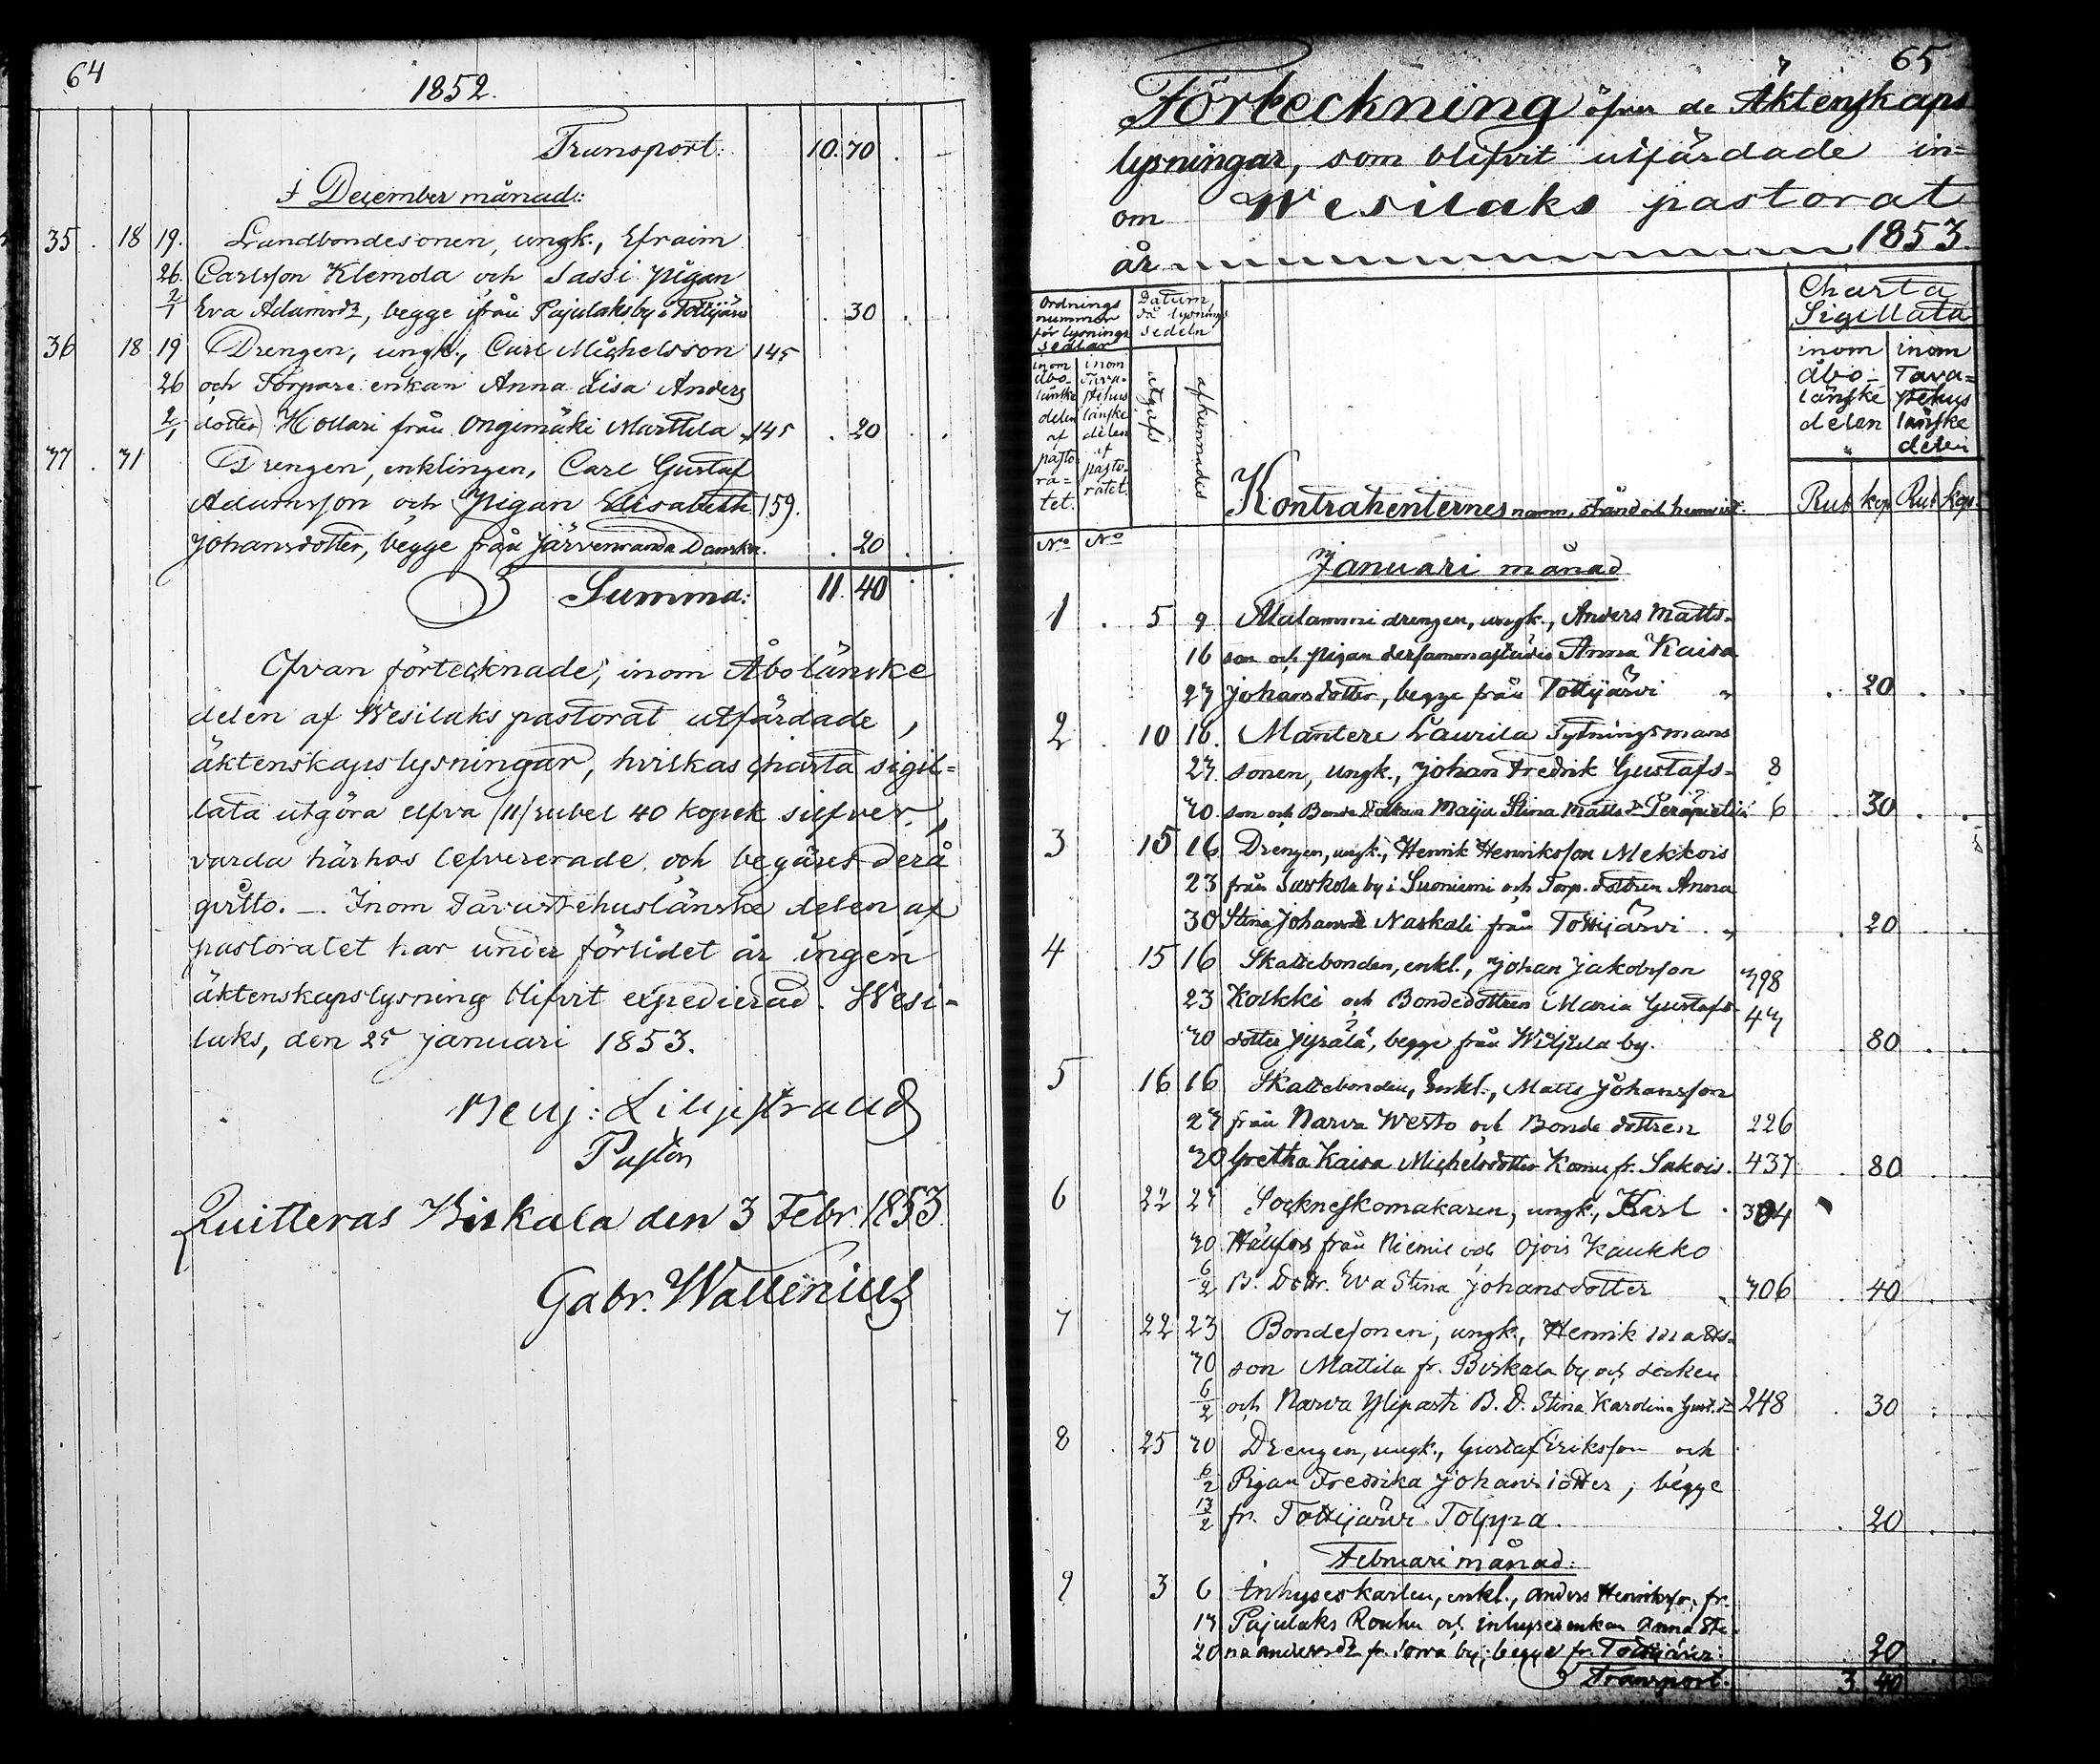 64
1852.
Transport: 10. 70
i December månad:
35. 18 19. Landbondesonen, ungk., Efraim
26. Carlsson Klemola och Sassi pigan
2/1 Eva Adamsdr, begge ifrån Pajulaks by i Tottijärvi 30
36 18 19 Drengen, ungk., Carl Michelsson 145
26 och Torpare enkan Anna Lisa Anders
2/1 dotter Hollari från Onginmäki Marttila 145 20
37. 31 Drengen, enklingen, Carl Gustaf
Adamsson och Pigan Elisabeth 159.
Johansdotter, begge från Järvenranda Danska. 20
Summa: 11. 40
Ofvan förtecknade, inom Åbolänske
delen af Wesilaks pastorat utfärdade,
äktenskapslysningar, hvilkas charta sigil=
lata utgöra elfva /11/ rubel 40 kopek silfver,
varda härhos lefvererade och begäres derå
qvitto. — Inom Tavastehuslänske delen af
pastoratet har under förlidet år ingen
äktenskapslysning blifvit expedierad. Wesi-
laks, den 25 Januari 1853.
Benj: Liljestrand
Pastor
Quitteras Birkala den 3 Febr. 1853.
Gabr. Wallenius
65
Förteckning öfver de Äktenskaps
lysningar, som blifvit utfärdade in=
om Wesilaks pastorat
år 1853.
Ordnings nummer för lysnings sedlar
Datum, då lysnings sedeln
Charta Sigillata
inom Åbo- länske delen af pasto- ra= tet.
inom Tava- stehus länske delen af pasto- ratet.
utgafs
afkunnades
Kontrahenternes namn, stånd och hemvist
inom Åbo- länske delen
inom Tava= stehus länske delen
Rub kop Rub kop.
No No
Januari månad
1. 5 9 Alalammi drengen, ungk., Anders Matts-
16 son och pigan dersammastädes Anna Kaisa
23 Johansdotter, begge från Tottijärvi 20
2 10 16. Mantere Laurila Sytningsmans
23 sonen, ungk., Johan Fredrik Gustafs- 8
30 son och Bonde Maija Stina Matts dr 6 30
3 15 16 Drengen, ungk., Henrik Henriksson Mekkois
23 från Sarkola by i Suoniemi och Torp. dottren Anna
30 Stina Johansdr Naskali från Tottijärvi 20
4 15 16 Skattebonden, enkl., Johan Jakobsson 398
23 Koikki och Bondedottren Maria Gustafs- 43
30 dotter Jyrälä, begge från Wiljala by. 80
5 16 16 Skattebonden, Enkl., Matts Johansson
23 från Narva Westo och Bonde dottren 226
30 Gretha Kaisa Michelsdotter Kamu fr. Sakois. 437 80
6 22 23 Sockneskomakaren, ungk., Karl 304
30 från Niemis och Ojois Kaukko
6/2 B. Dottr. Eva Stina Johansdotter 306 40
7 22 23 Bondesonen, ungk., Henrik Matts-
30 son Mattila fr. Birkala by och socken
6/2 och Narva Ylipasti B. D. Stina Karolina Gust. dr 248 30
8 25 30 Drengen, ungk., Gustaf Eriksson och
6/2 Pigan Fredrika Johansdotter, begge
13/2 fr. Tottijärvi Tolppa. 20
Februari månad:
9 3 6 Inhyseskarlen, enkl., Anders Henriksson fr.
13 Pajulaks Rouhu och inhysesenkan Anna Sti-
20 na Andersdr fr. Sorva by, begge fr. Tottijärvi 20
Transport. 3. 40